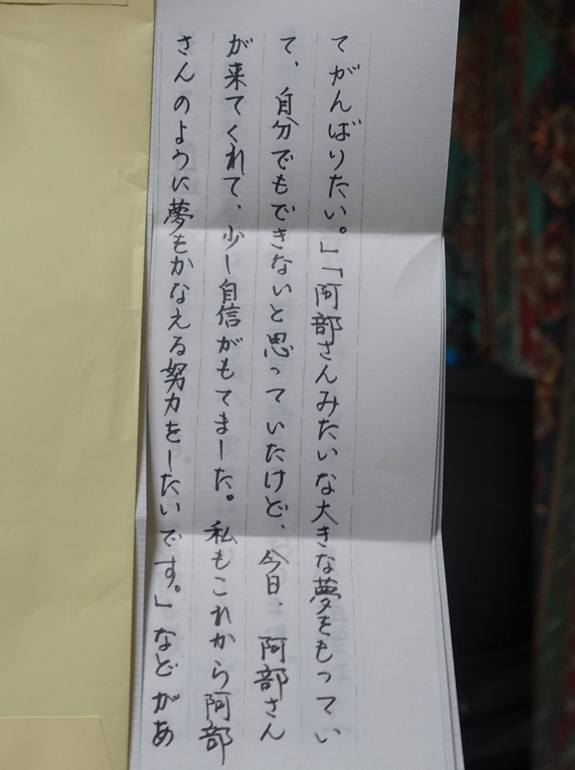 てがんばりたい。」「阿部さんみたいな大きな夢をもってい
て、自分でもできないと思っていたけど、今日、阿部さん
が来てくれて、少し自信がもてました。私もこれから阿部
さんのように夢をかなえる努力をしたいです。」などがあ